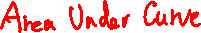 Area Under Curve